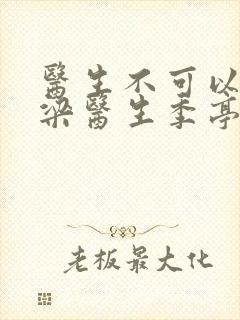 醫生不可以
梁醫生季亭
老板最大化